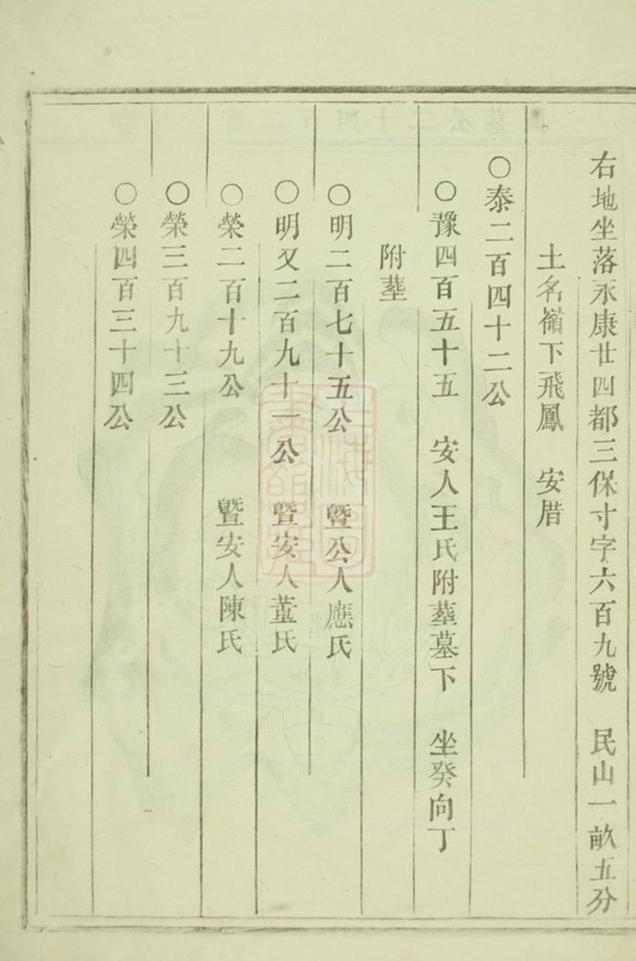 右地坐落永康廿四都三保寸字六百九號　民山一畝五分
土名嶺下飛鳳　安厝
○泰二百四十二公
○豫四百五十五　安人王氏附塟墓下　坐癸向丁
附塟
○明二百七十五公　暨公人應氏
○明又二百九十一公　暨安人董氏
○榮二百十九公　暨安人陳氏
○榮三百九十三公
○榮四百三十四公